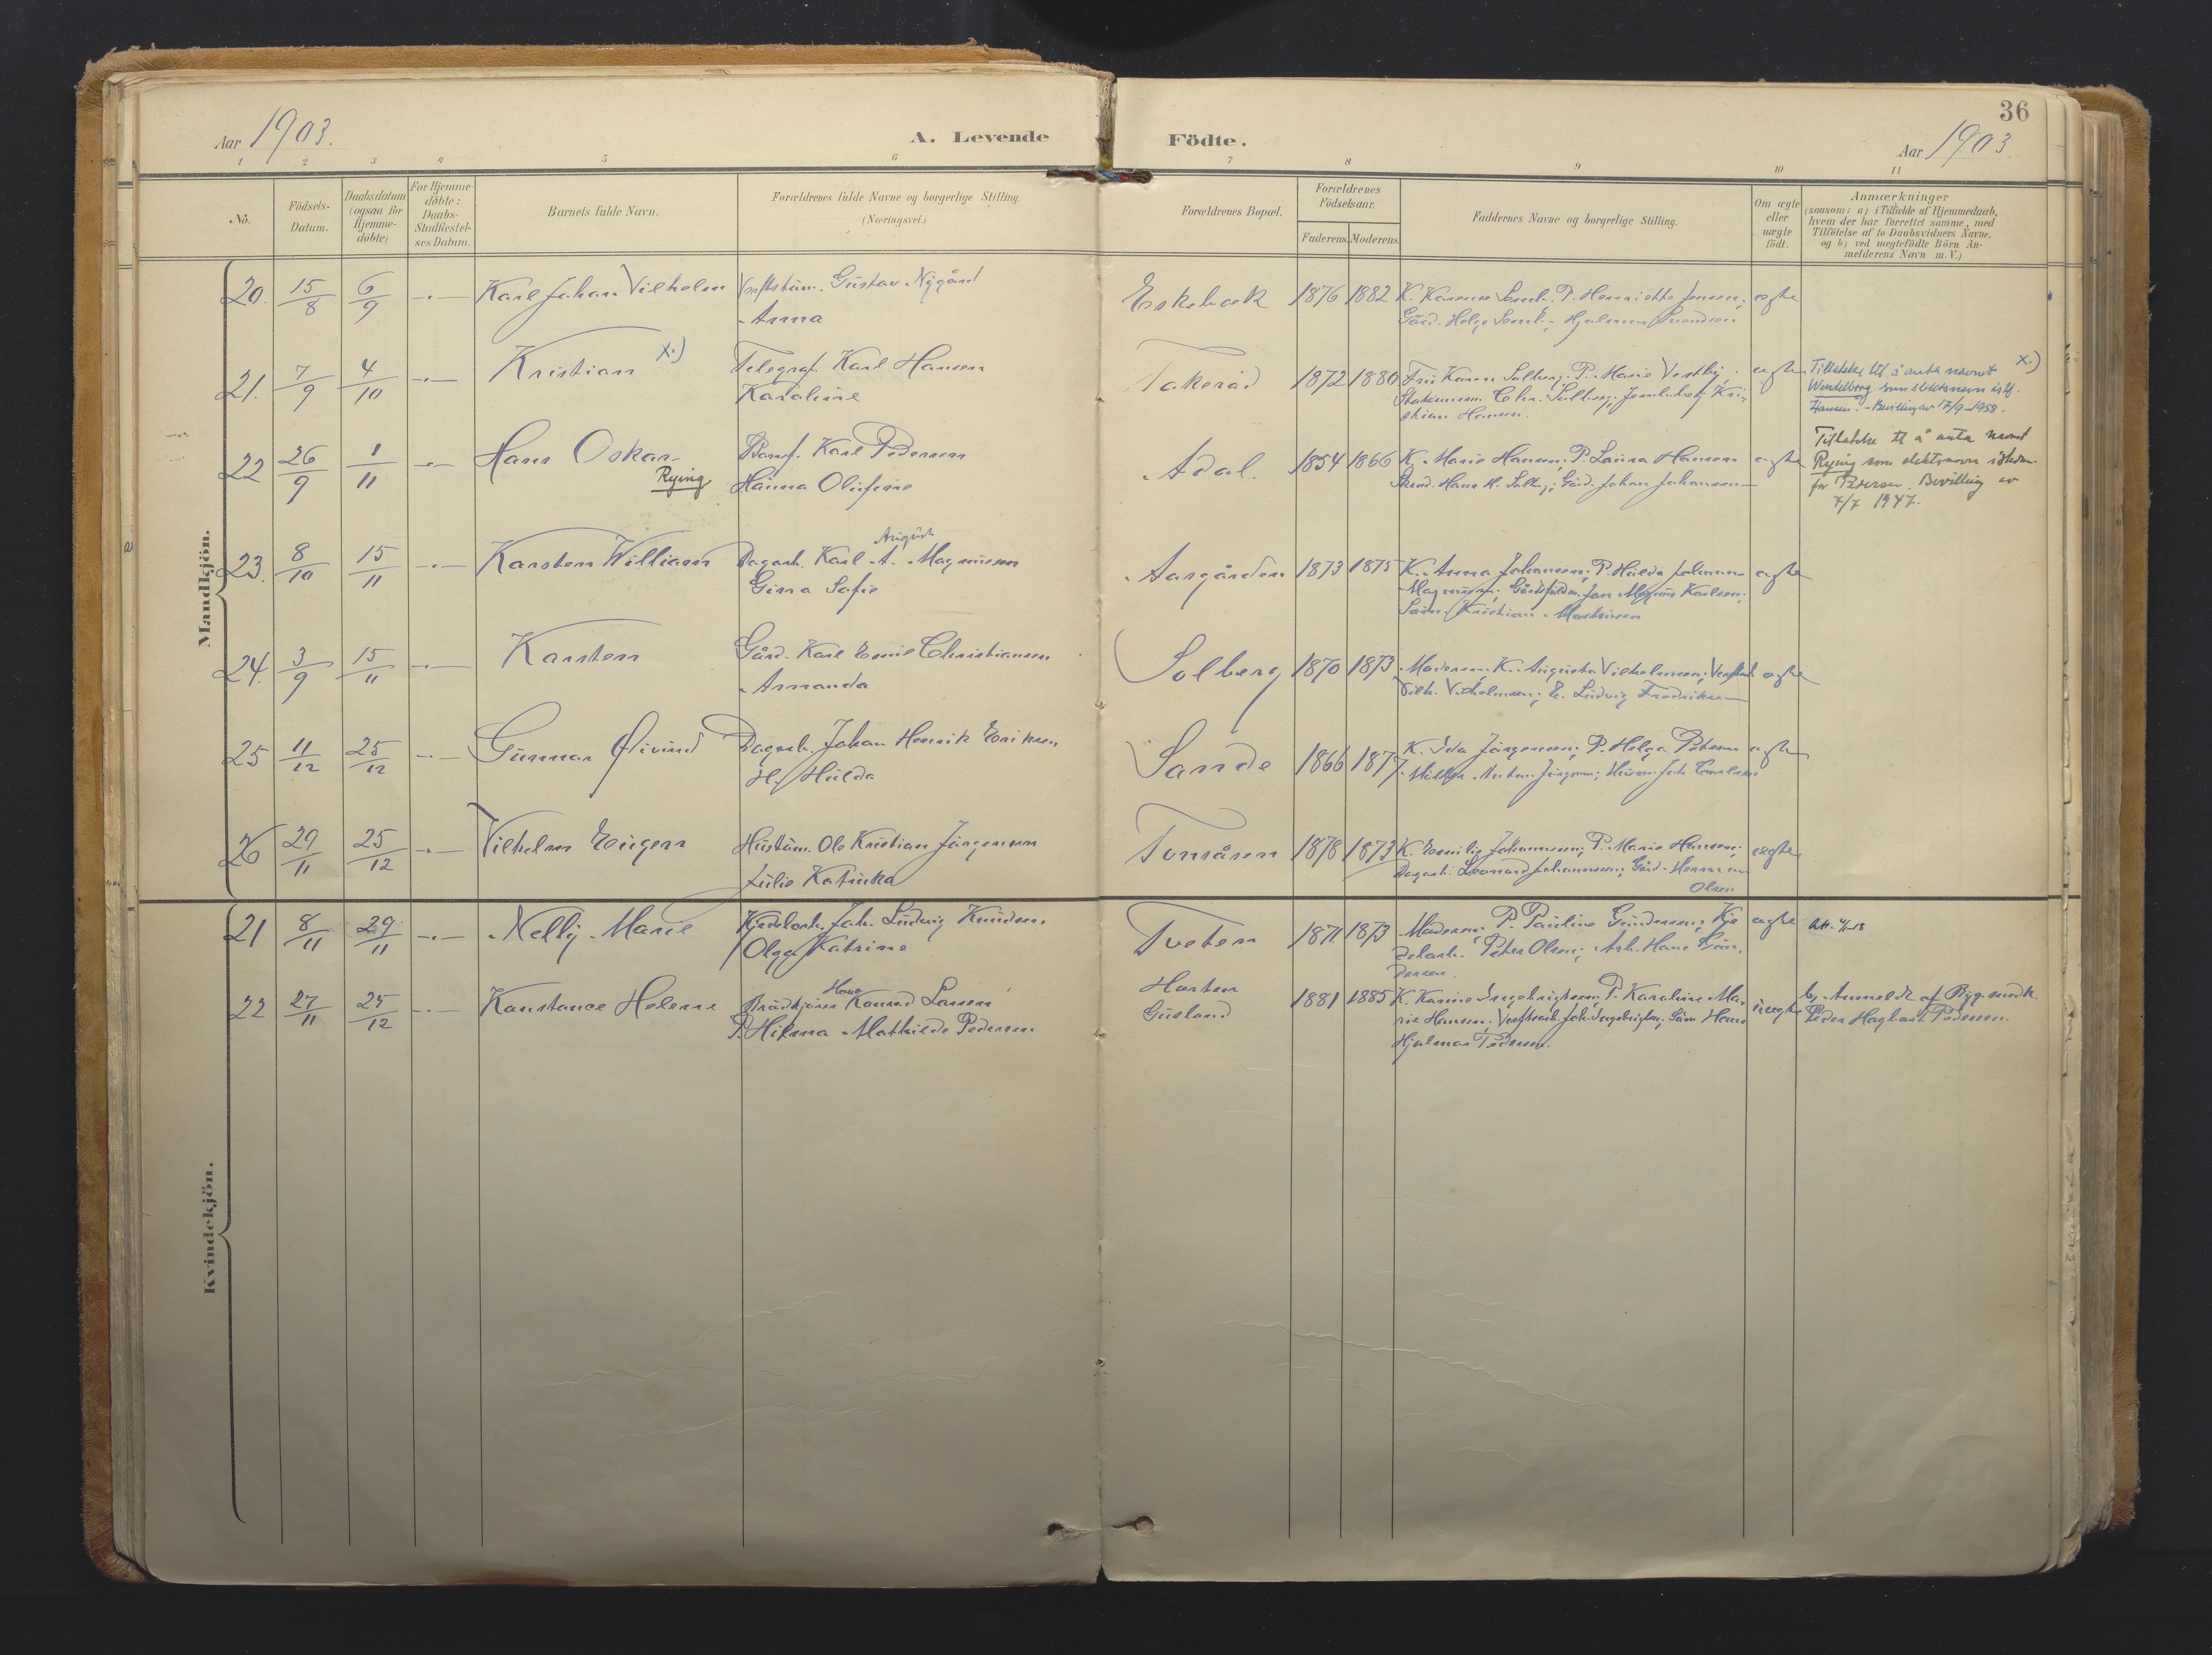 36
Aar 1903.
A. Levende Födte.
Aar 1903.
1 2 3 4 5 6 7 8 9 10 11
No.
Födsels-
Datum.
Daabsdatum
(ogsaa for
Hjemme-
döbte)
For Hjemme-
döbte:
Daabs-
Stadfæstel-
ses Datum.
Barnets fulde Navn.
Forældrenes fulde Navne og borgerlige Stilling.
(Næringsvei.)
Forældrenes Bopæl.
Forældrenes
Födselsaar.
Faderens. Moderens.
Faddernes Navne og borgerlige Stilling.
Om ægte
eller
uægte
födt.
Anmærkninger
(saasom: a) i Tilfælde af Hjemmedaab,
hvem der har forrettet samme, med
Tilföielse af to Daabsvidners Navne.
og b) ved uægtefödte Börn An-
melderens Navn m. V.)
Mandkjön.
20. 15/8 6/9 Karl Johan Vilhelm Gustav Nygård
Anna
Eskebæk 1876 1882 K. Karense P. Henriette Jensen; ægte
Gård. Helge Hjalmar
21. 7/9 4/10 Kristian x.) Telegraf. Karl Hansen
Karoline
Takeråd 1872 1880 Fru Karen Solberg; P. Marie Vestby; ægte
Chr. Solberg; Kri-
stian Hansen.
Tillatelse til å anta navnet x.)
Wendelborg som slektsnavn istf.
Hansen. - Bevilling av 17/9-1958.
22 26/9 1/11 Hans Oskar Rying Karl Pedersen
Hanna Olufine
Adal. 1854 1866 K. Marie Hansen; P. Laura Hansen ægte
Hans H. Solberg; Gård. Johan Johansen
Tillatelse til å anta navnet
Rying som slektsnavn isteden-
for Pedersen. Bevilling av
7/7 1947.
23. 8/10 15/11 Karsten William Dagarb. Karl A. August Magnusen
Gina Sofie
Aasgården 1873 1875 K. Anna Johansen; P. Hulda Johansen ægte
Magnusen; Jan Magnus Karlsen;
Kristian Martinsen
24. 3/9 15/11 Karsten Gård. Karl Emil Christiansen
Amanda
Solberg 1870 1873 Moderen; K. Augusta Vilhelmsen; ægte
Vilh. Vilhelmsen; E. Ludvig Fredriksen
25 11/12 25/12 Gunnar Øivind Dagarb. Johan Henrik Eriksen
Hulda
Sande 1866 1877 K. Ida Jörgensen; P. Helga Petersen ægte
Anton Jörgensen;
26 29/11 25/12 Vilhelm Eugen Hustöm. Ole Kristian Jörgensen
Julie Katinka
Tomåsen 1878 1873 K. Emilie Johannesen; P. Marie Hansen; ægte
Dagarb. Leonard Johannesen; Gård. Herman
Olsen
Kvindekjön.
21 8/11 29/11 Nelly Marie Kjedelarb. Joh. Ludvig Knudsen
Olga Katrine
Tveten 1871 1873 Moderen; P. Pauline Gundersen; Kje- ægte
delarb. Peter Olsen; Arb. Hans Gun-
dersen.
22 27/11 25/12 Konstance Helene Hans Konrad Larsen
P. Hilma Mathilde Pedersen
Horten
Gusland 1881 1885 K. Karine Ingebrigtsen; P. Karoline Ma- uægte
rie Hansen; Joh. Ingebrigtsen; Söm. Hans
Hjalmar Pedersen.
b) Anmeldt af Bygsnedk.
Peder Hagbart Pedersen.